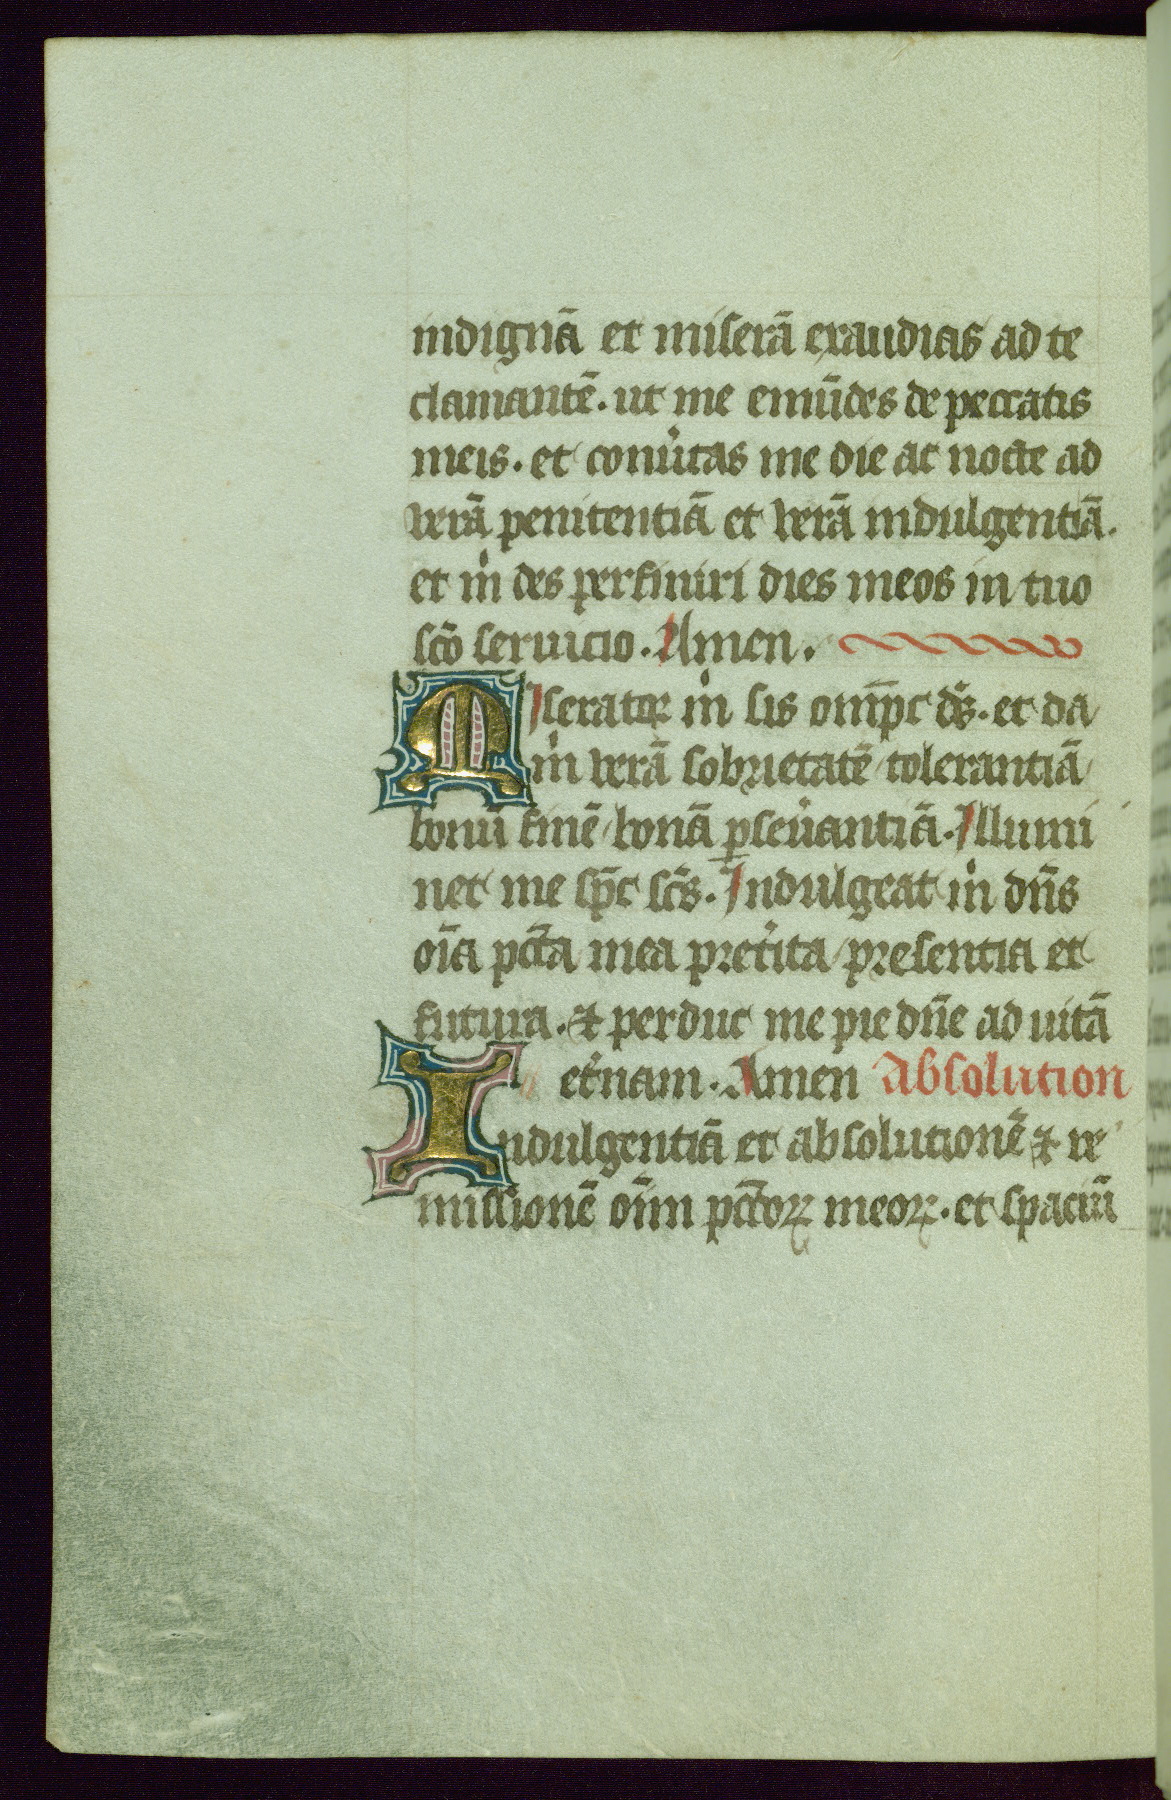 indignā et miserā exaudias ad te
clamantē. ut me emūdes de peccatis
meis. et conu̓tas me die ac nocte ad
verā penitentiā et verā indulgentiā.
et m̓ des perfiniri dies meos in tuo
scō seruicio. Amen.
MIserator m̓ sis omp̄c ds̓. et da
m̓ verā sobrietatē / tolerantiā /
bonū finē / bonā ꝑseu̓antiā. Illumi
net me sp̄c sc̄s. Indulgeat m̓ dn̄s
oīa pctā mea pret̓ita / presentia et
futura. ⁊ perduc me pie dn̄e ad uitā
et̓nam. Amen Absolution
Indulgentiā et absolutionē ⁊ re
missionē oīm pctōꝝ meoꝝ. et spaciū